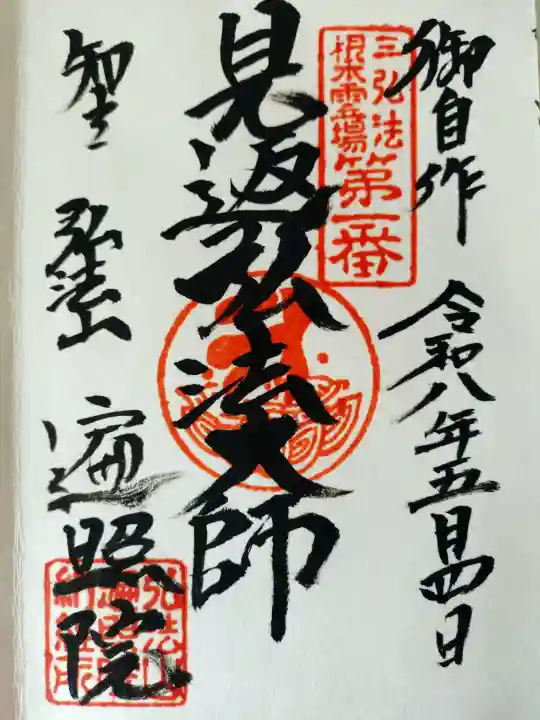 御自作
令和八年五月四日
三弘法
根本霊場
第一番
見返弘法大師
聖
弘法山
遍照院